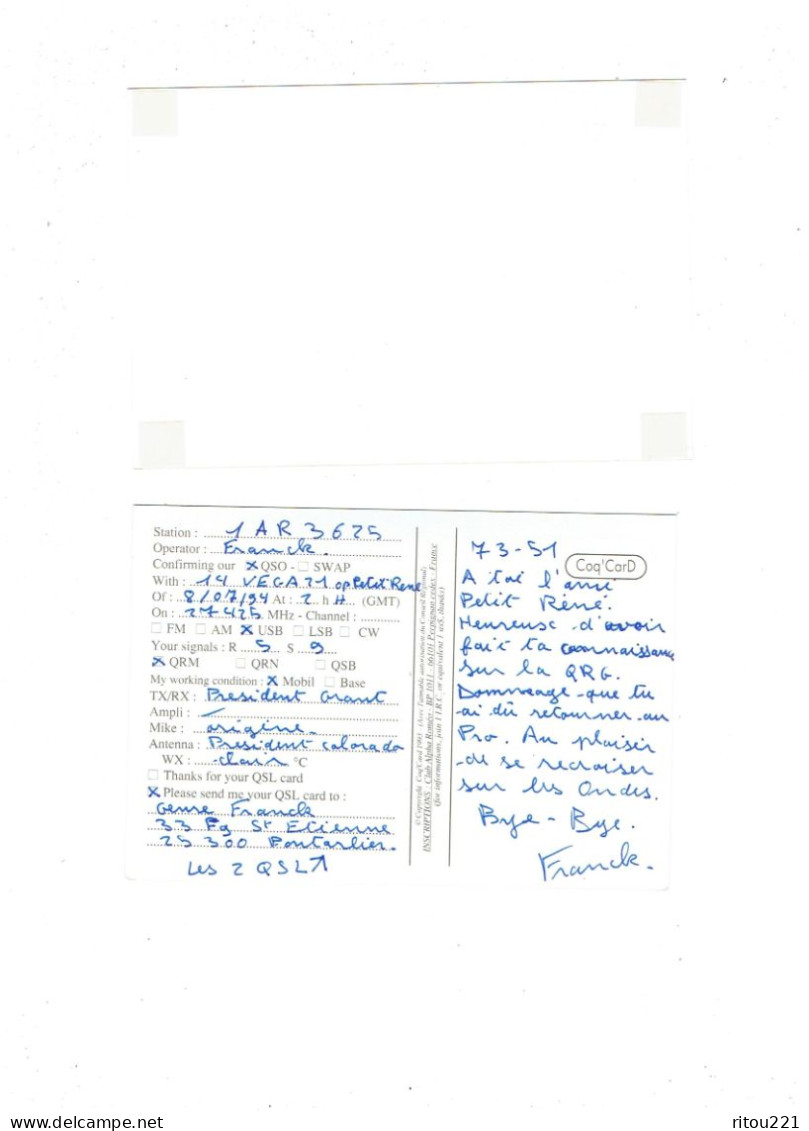 Station : 1 AR 3625
Operator : Franck.
Confirming our X QSO - SWAP
With : 14 VEGA 21 op Petit René
Of : 8/07/94 At : 2 h (GMT)
On : 27425 MHz - Channel :
FM AM X USB LSB CW
Your signals : R 5 S 9
X QRM QRN QSB
My working condition : X Mobil Base
TX/RX : President Grant
Ampli : /
Mike : origine
Antenna : President Colorado
WX : clair °C
Thanks for your QSL card
X Please send me your QSL card to :
Franck
33 Fg St Etienne
25300 Pontarlier.
Les 2 QSL
©Copyright Coq'Card 1993 (Avec l'aimable autorisation du Conseil Régional)
INSCRIPTIONS : Club Alpha Roméo - BP 1011 - 66101 Perpignan cedex - France
(for informations, join 1 I.R.C. or equivalent 1 us$, thanks)
73-51
Coq'CarD
A toi l'ami
Petit Réné.
Heureuse d'avoir
fait ta connaissance
sur la QRG.
Dommage que tu
ai dû retourner au
Pro. Au plaisir
de se recroiser
sur les Ondes.
Bye - Bye.
Franck.
ritou221